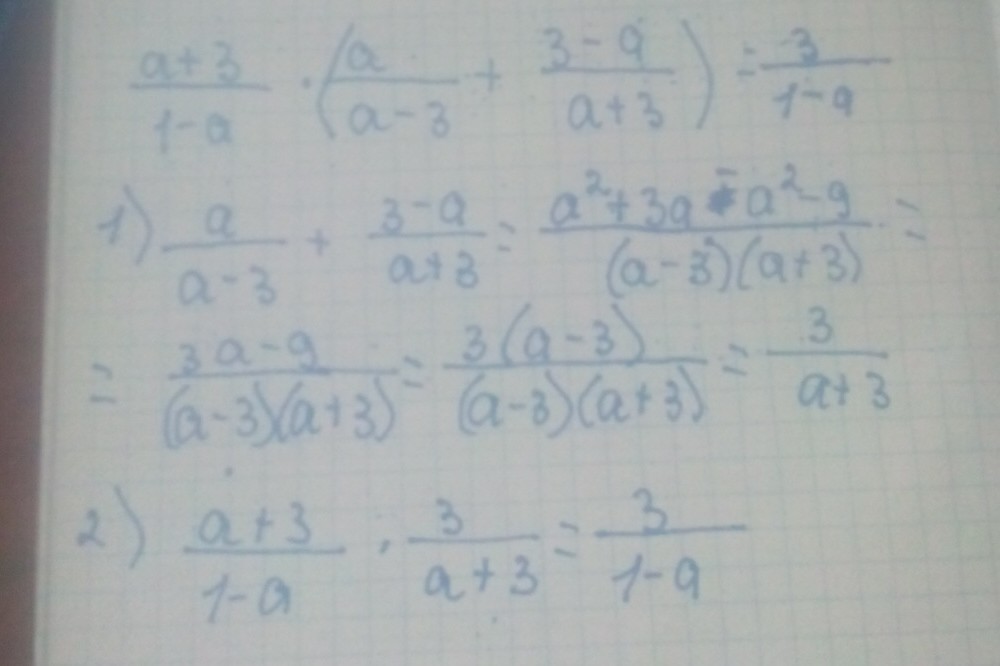 (a+3)/(1-a) · (a/(a-3) + (3-a)/(a+3)) = 3/(1-a)
1) a/(a-3) + (3-a)/(a+3) = (a²+3a-a²-9)/((a-3)(a+3)) =
= (3a-9)/((a-3)(a+3)) = 3(a-3)/((a-3)(a+3)) = 3/(a+3)
2) (a+3)/(1-a) · 3/(a+3) = 3/(1-a)